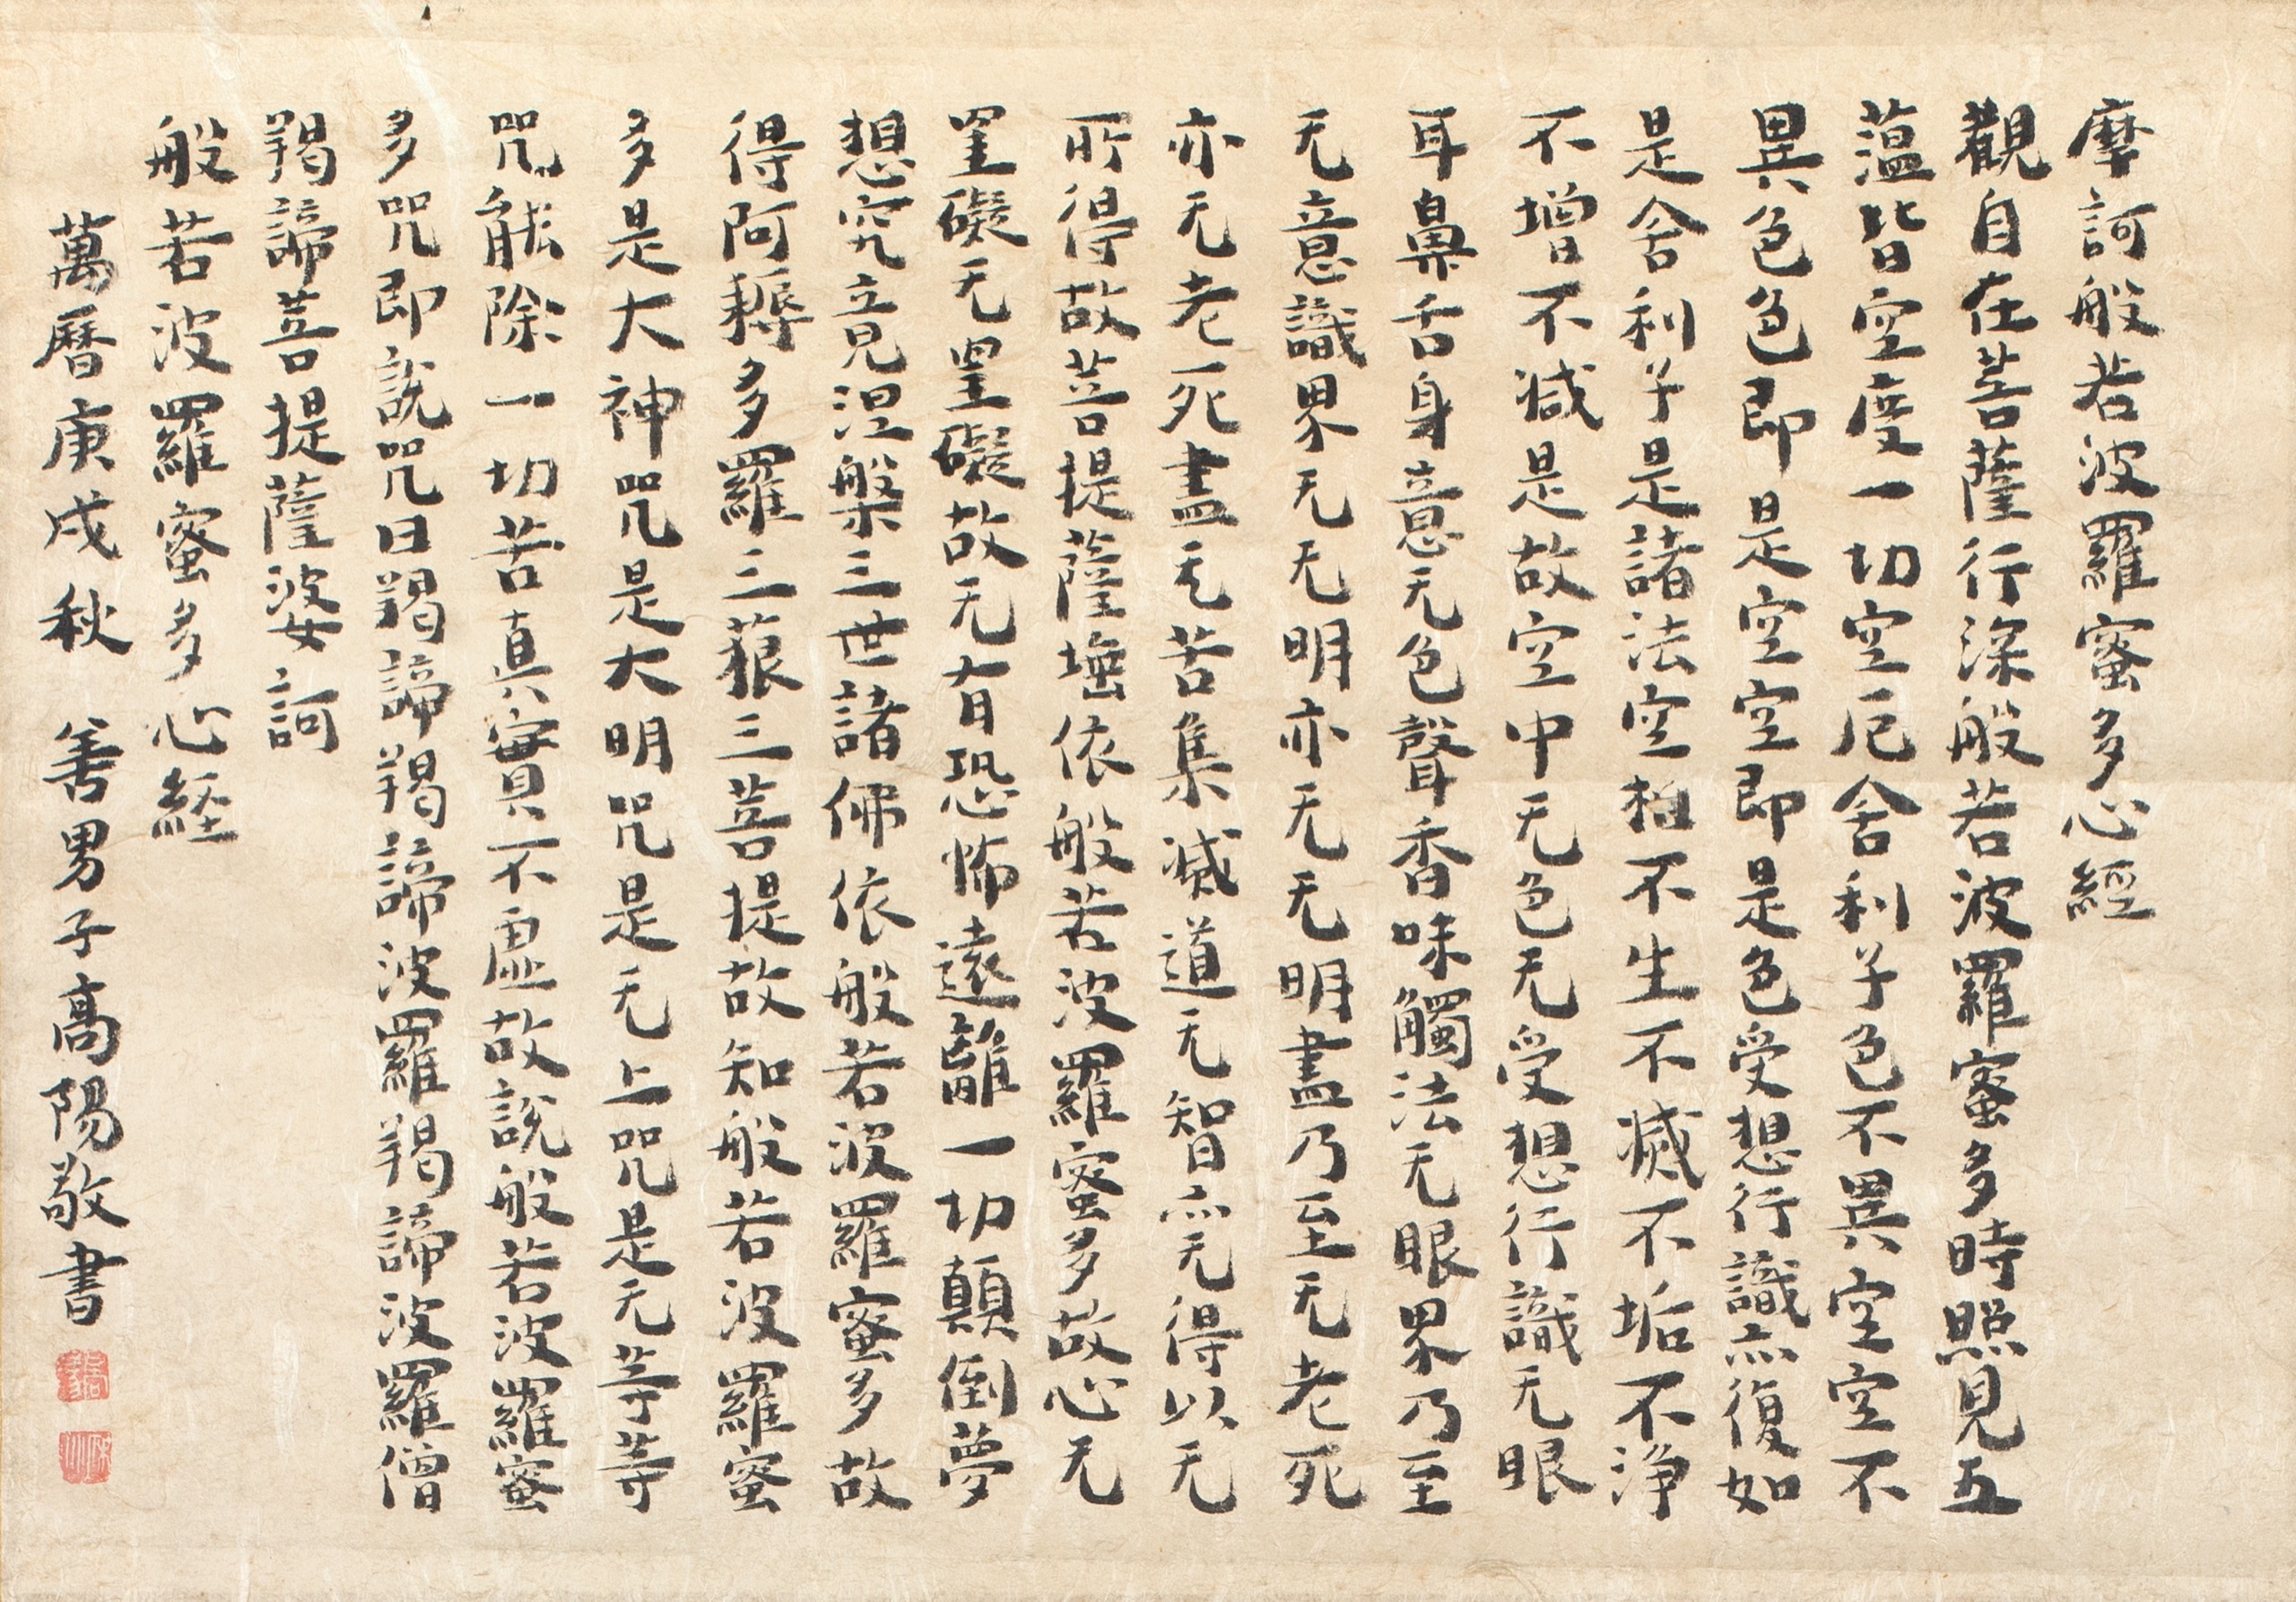 摩訶般若波羅蜜多心經
觀自在菩薩行深般若波羅蜜多時照見五
蕰皆空度一切空厄舍利子色不異空空不
異色色即是空空即是色受想行識亦復如
是舍利子是諸法空相不生不滅不垢不淨
不增不減是故空中无色无受想行識无眼
耳鼻舌身意无色聲香味觸法无眼界乃至
无意識界无无明亦无无明盡乃至无老死
亦无老死盡无苦集滅道无智亦无得以无
所得故菩提薩埵依般若波羅蜜多故心无
罣礙无罣礙故无有恐怖遠離一切顛倒夢
想究竟涅槃三世諸佛依般若波羅蜜多故
得阿耨多羅三藐三菩提故知般若波羅蜜
多是大神咒是大明咒是无上咒是无等等
咒能除一切苦真實不虛故說般若波羅蜜
多咒即說咒曰羯諦羯諦波羅羯諦波羅僧
羯諦菩提薩婆訶
般若波羅蜜多心経
萬曆庚戌秋 善男子高陽敬書